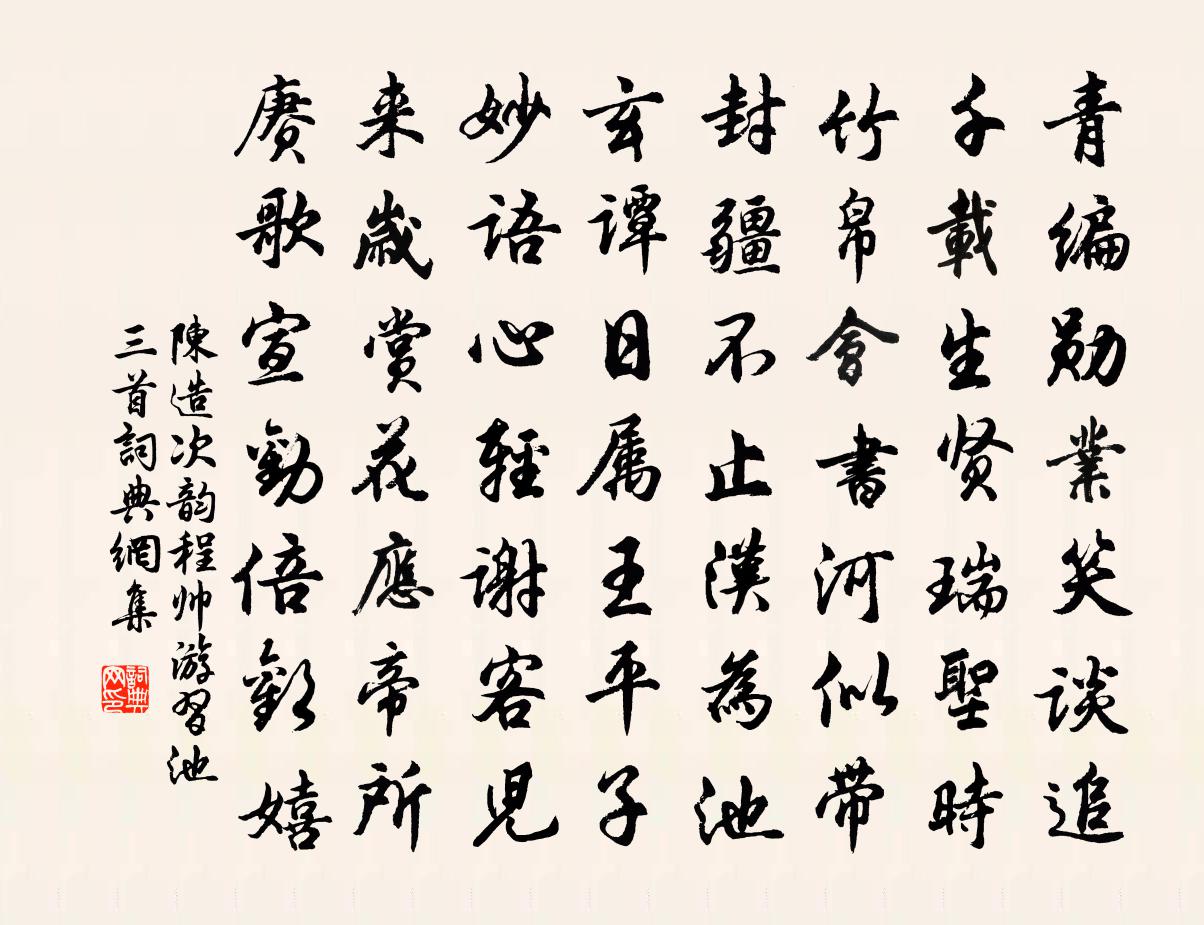 青编勋業笑谈追
千載生贤瑞聖時
竹帛會書河似带
封疆不止漢為池
玄谭日属王平子
妙语心輕谢客児
来歲赏花應帝所
赓歌宣勸倍歡嬉
陳造次韵程帅游習池
三首詞典網集
詞典
网印